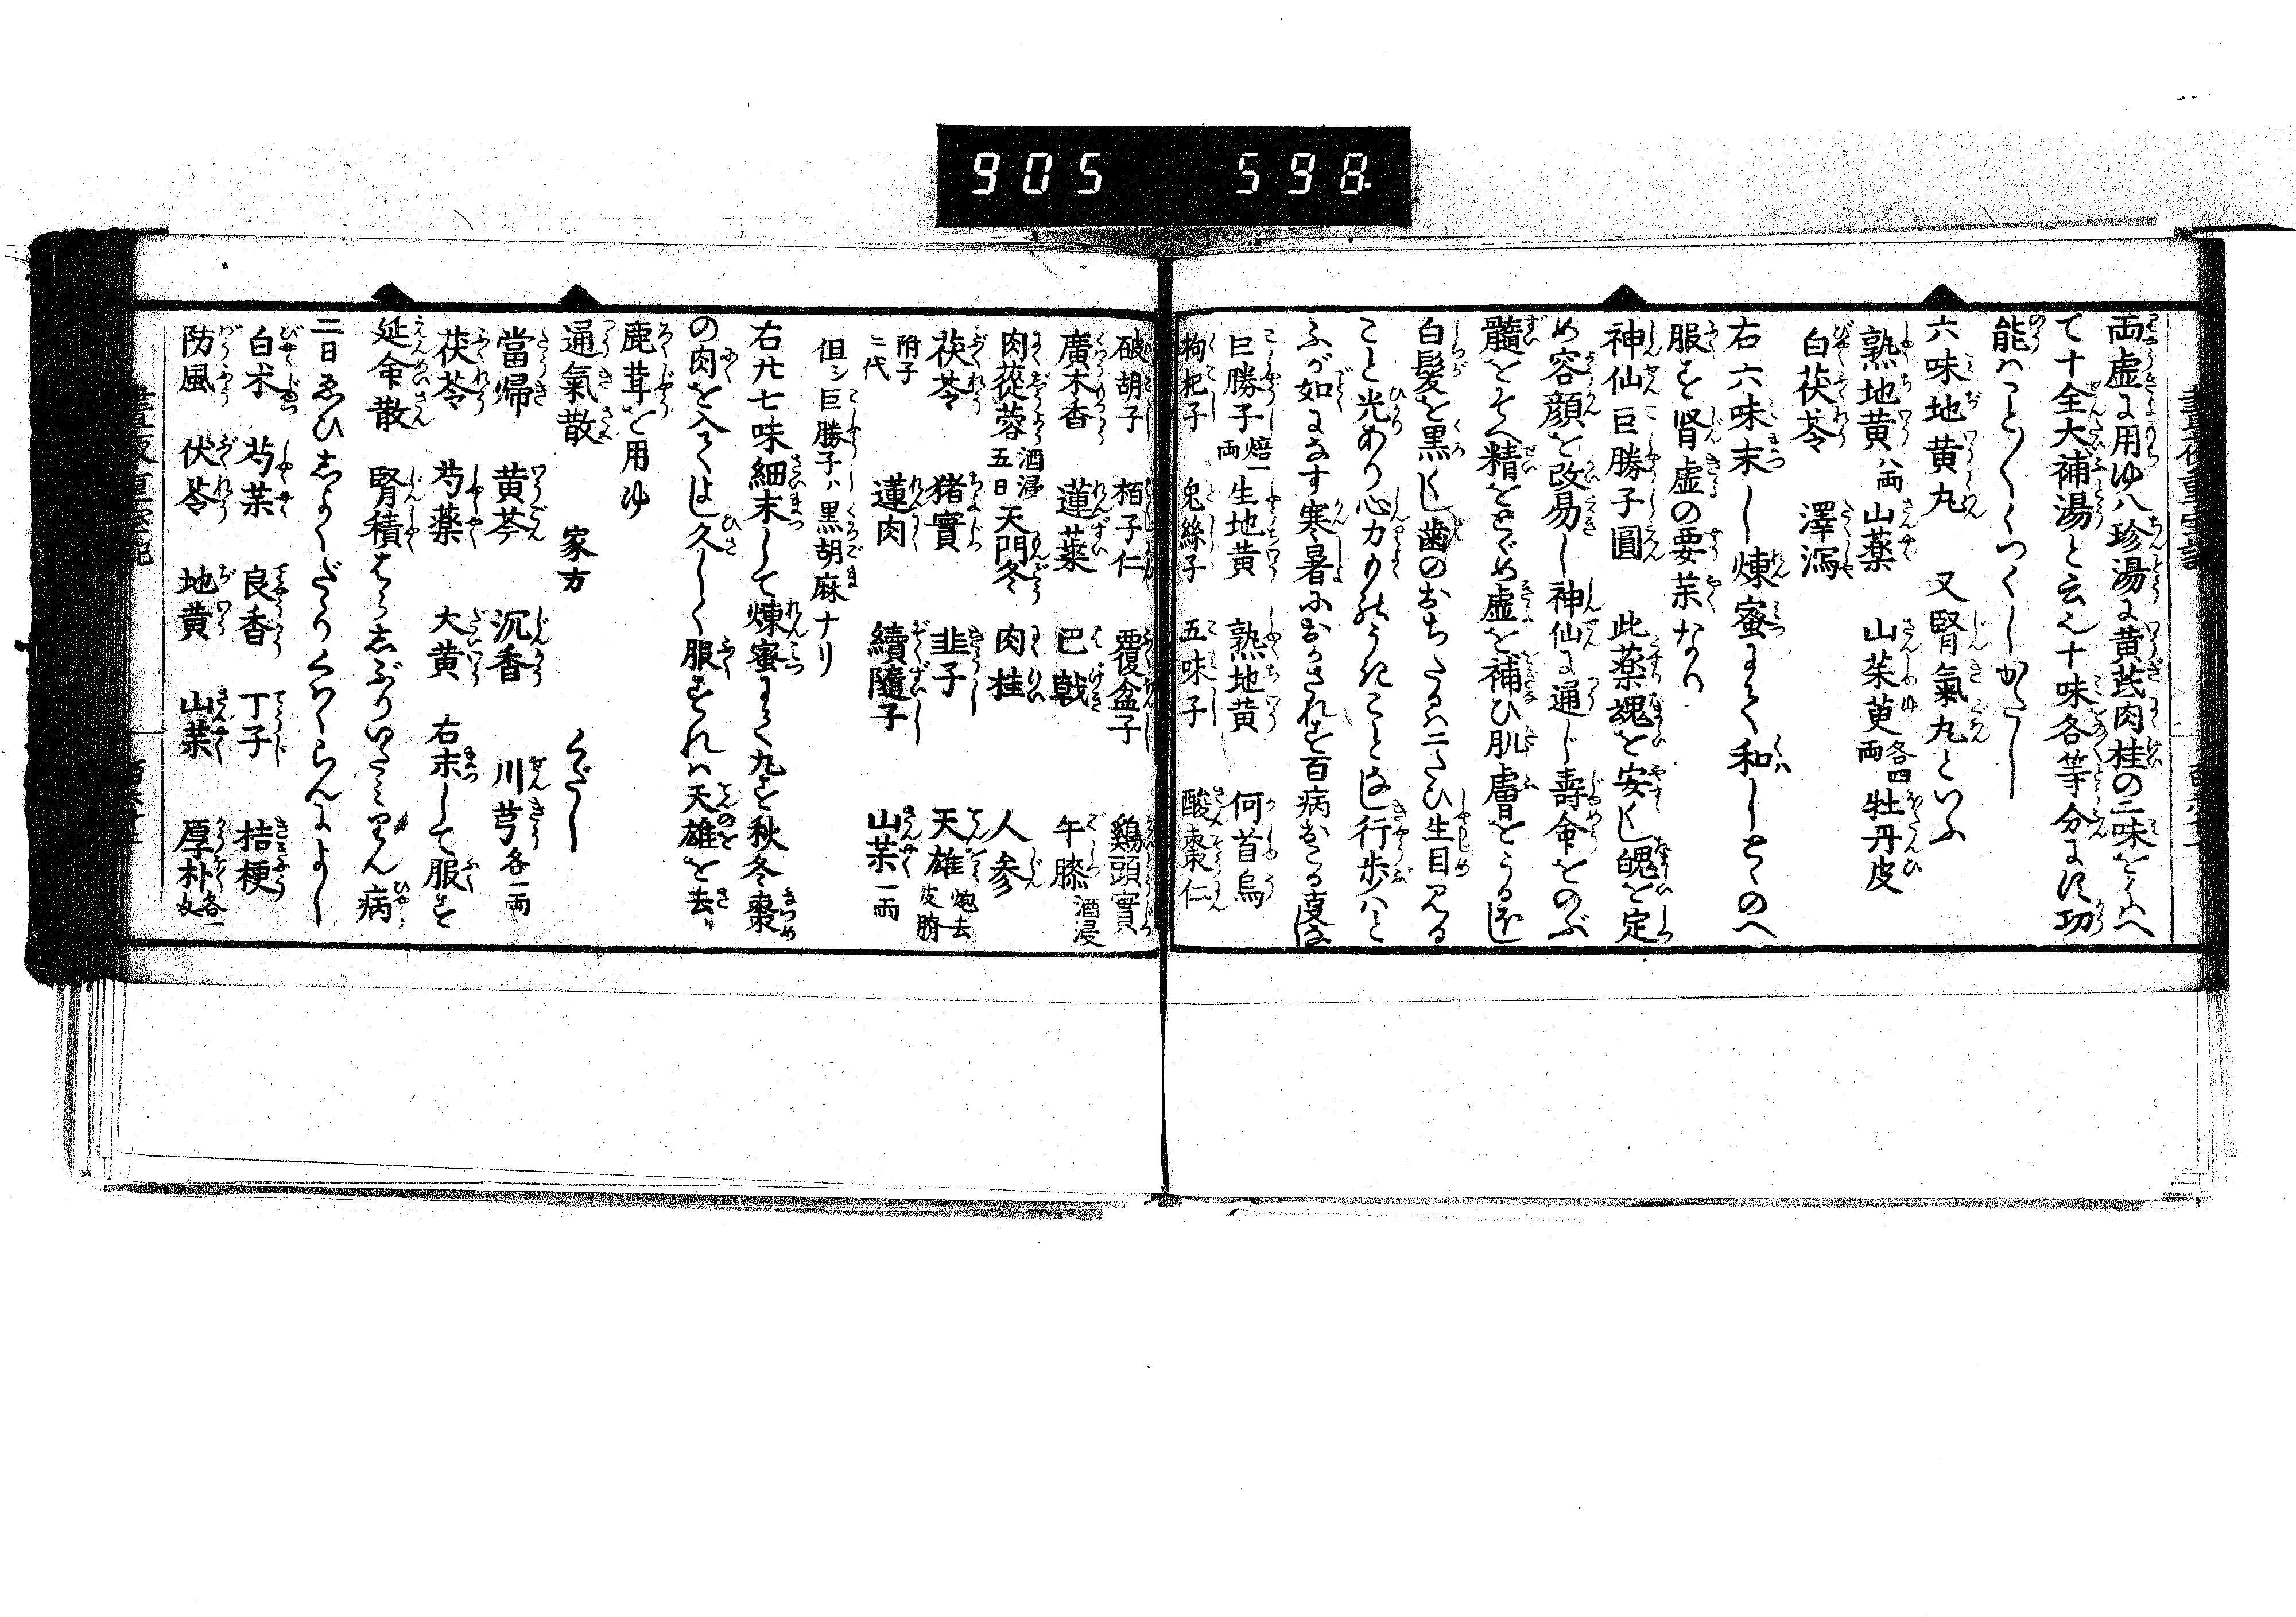 905 598
両虚に用ゆ八珍湯に黄芪肉桂の二味をくハへ
て十全大補湯と云也十味各等分にに功
能ハこと〲くつくしがたし
六味地黄丸 又腎氣丸といふ
熟地黄八両 山薬 山茱萸各四両 牡丹皮
白茯苓 澤瀉
右六味末し煉蜜にて和しとゝのへ
服す腎虚の要薬なり
神仙巨勝子圓 此薬魂を安くし魄を定
め容顔を改易し神仙に通じ壽命をのぶ
髓をそへ精をとゞめ虚を補ひ肌膚をうるほし
白髪を黒くし歯のおちたるハ二たひ生目みる
こと光あり心力つかるゝことなし行歩ハと
ふが如になす寒暑におかされず百病おこる事なし
巨勝子焙一両 生地黄 熟地黄 何首烏
枸杞子 兎絲子 五味子 酸棗仁
破胡子 栢子仁 覆盆子 鷄頭實
廣木香 蓮蘂 巴戟 午膝酒浸
肉蓯蓉酒浸五日 天門冬 肉桂 人参
茯苓 猪實 韭子 天雄炮去皮臍
附子ニ代 蓮肉 續隨子 山茱一両
但シ巨勝子ハ黒胡麻ナリ
右廿七味細末して煉蜜にて丸ず秋冬棗
の肉を入てよし久しく服すれハ天雄を去リ
鹿茸を用ゆ
通氣散 家方 くだし
當帰 黄芩 沉香 川芎各一両
茯苓 芍薬 大黄 右末して服す
延命散 腎積はらしぶりいたミりん病
二日ゑひしよくだりくハくらんによし
白朮 芍薬 良香 丁子 桔梗
防風 伏苓 地黄 山薬 厚朴各一